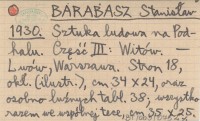 BARABASZ Stanisław
1930. Sztuka ludowa na Pod-
halu. Część III: Witów. —
Lwów, Warszawa. Stron 18,
okl. (ilustr.), cm 34 x 24, oraz
osobno luźnych tabl. 38, wszystko
razem we wspólnej tece, cm 35 x 25.